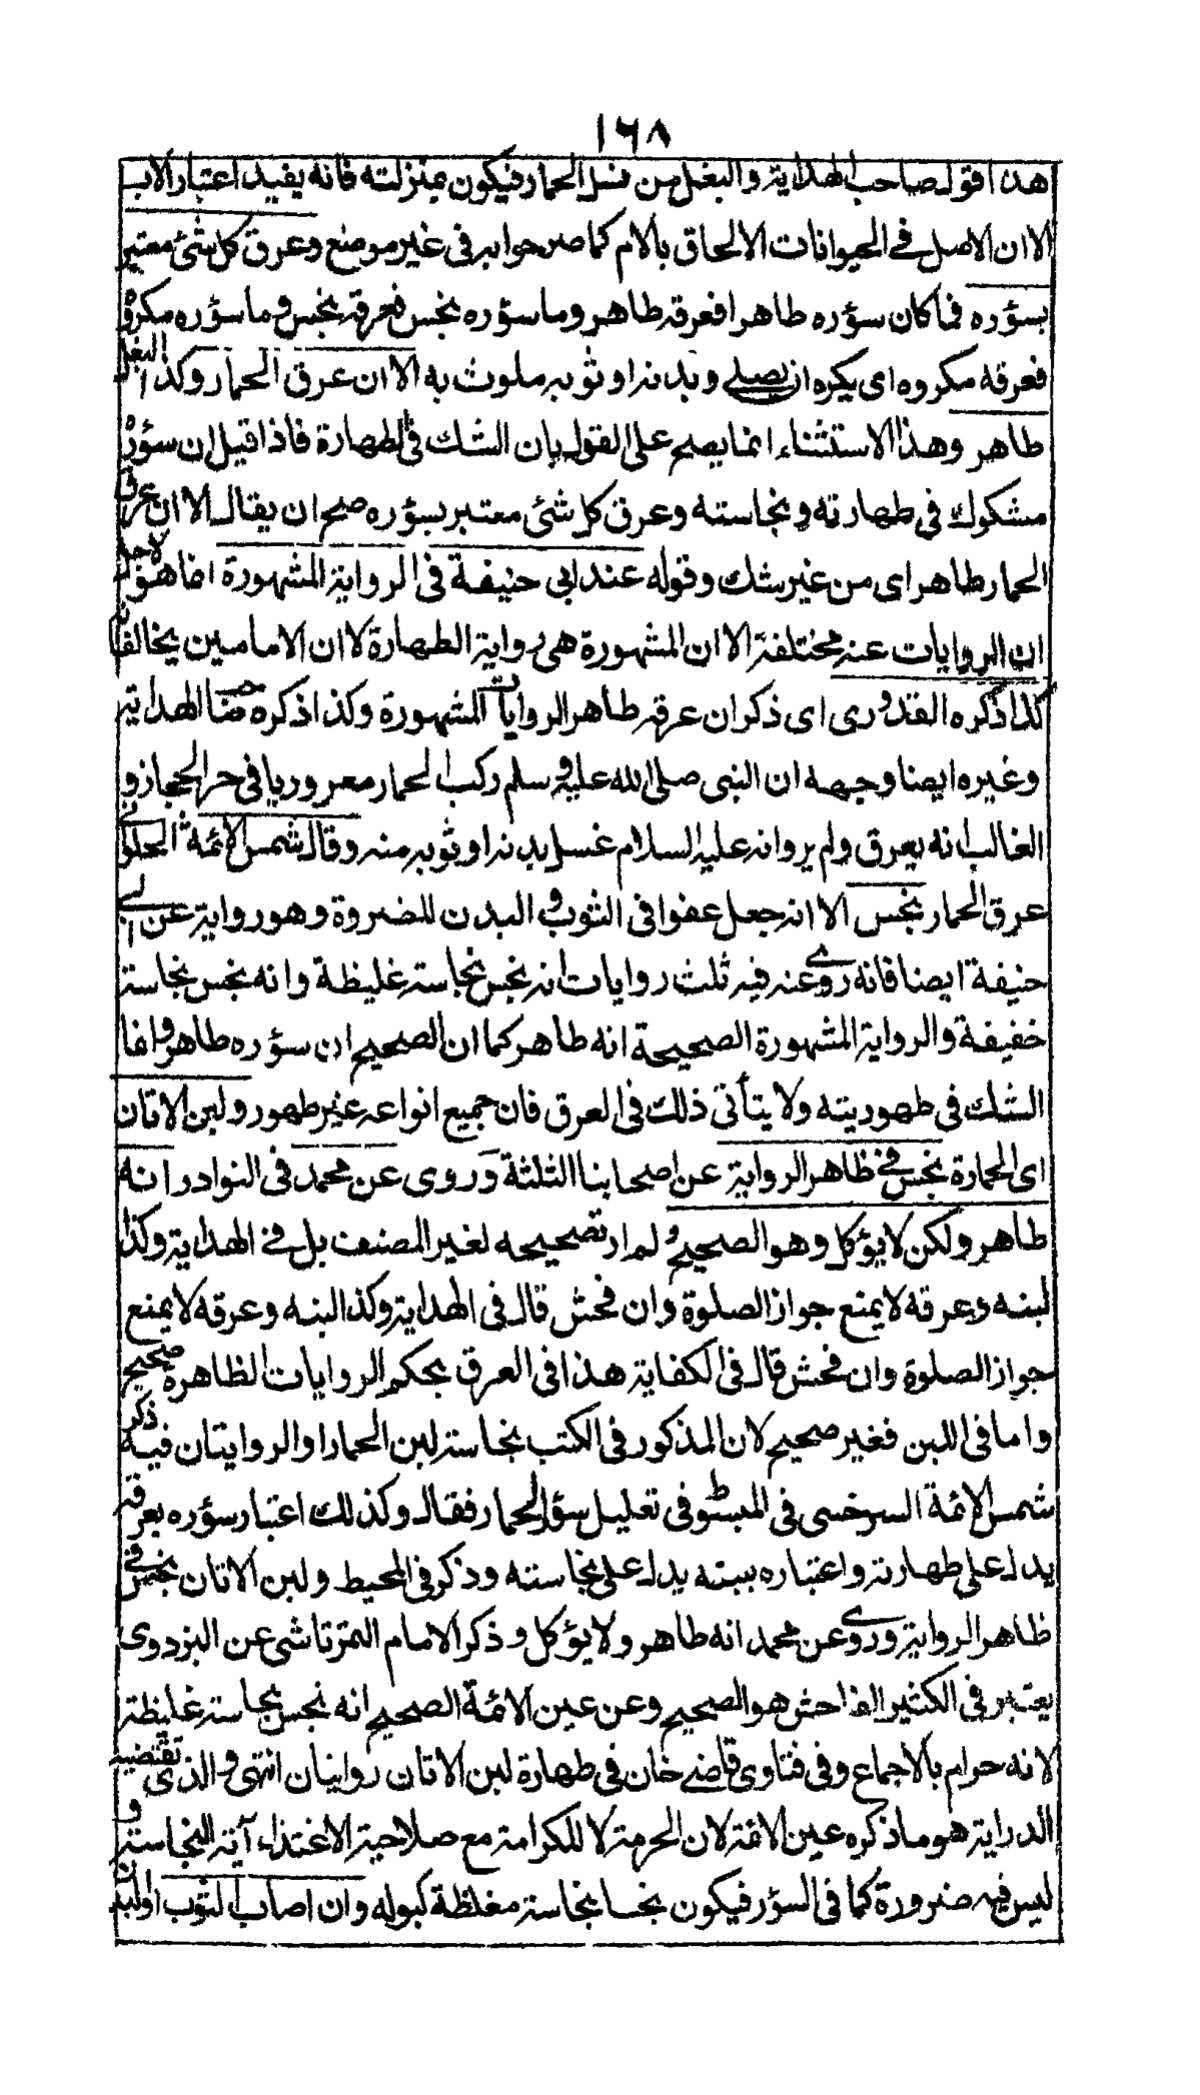 ١٦٨
هذا قول صاحب الهداية والبغل من نسل الحمار فيكون بمنزلته فانه يفيد اعتبار الاب
الا ان الاصل في الحيوانات الالحاق بالام كما صرحوا به في غير موضع وعرق كل شئ معتبر
بسؤره فما كان سؤره طاهرا فعرقه طاهر وما سؤره نجس فعرقه نجس وما سؤره مكروه
فعرقه مكروه اى يكره ان يصلى وبدنه او ثوبه ملوث به الا ان عرق الحمار وكذا البغل
طاهر وهذا الاستثناء انما يصح على القول بان الشك فى الطهارة فاذا قيل ان سؤره
مشكوك فى طهارته ونجاسته وعرق كل شئ معتبر بسؤره صح ان يقال الا ان عرق
الحمار طاهر اى من غير شك وقوله عند ابى حنيفة فى الرواية المشهورة انما هو لاجل
ان الروايات عنه مختلفة الا ان المشهورة هى رواية الطهارة لا ان الامامين يخالفان
كذا ذكره القدورى اى ذكر ان عرقه طاهر الروايات المشهورة وكذا ذكره صاحب الهداية
وغيره ايضا وجهه ان النبى صلى الله عليه وسلم ركب الحمار معروريا فى حر الحجاز و
الغالب انه يعرق ولم يرو انه عليه السلام غسل بدنه او ثوبه منه وقال شمس الائمة الحلوانى
عرق الحمار نجس الا انه جعل عفوا فى الثوب والبدن للضروة وهو رواية عن ابى
حنيفة ايضا فانه روى عنه فيه ثلث روايات انه نجس نجاسة غليظة وانه نجس نجاسة
خفيفة والرواية المشهورة الصحيحة انه طاهر كما ان الصحيح ان سؤره طاهر وانما
الشك فى طهوريته ولا يتأتى ذلك فى العرق فان جميع انواعه غير طهور ولبن الاتان
اى الحمارة نجس فى ظاهر الرواية عن اصحابنا الثلثة وروى عن محمد فى النوادر انه
طاهر ولكن لا يؤكل وهو الصحيح ولم ار تصحيحه لغير المصنف بل فى الهداية وكذا
لبنه وعرقه لا يمنع جواز الصلوة وان فحش قال فى الهداية وكذا لبنه وعرقه لا يمنع
جواز الصلوة وان فحش قال فى الكفاية هذا فى العرق بحكم الروايات الظاهرة صحيح
واما فى اللبن فغير صحيح لان المذكور فى الكتب نجاسة لبن الحمار او الروايتان فيه ذكر
شمس الائمة السرخسى فى المبسوط فى تعليل سؤر الحمار فقال وكذلك اعتبار سؤره بعرقه
يدل على طهارته واعتباره ببنه يدل على نجاسته وذكر فى المحيط ولبن الاتان نجس فى
ظاهر الرواية وروى عن محمد انه طاهر ولا يؤكل وذكر الامام التمرتاشى عن البزدوى
يعتبر فى الكثير الفاحش هو الصحيح وعن عين الائمة الصحيح انه نجس نجاسة غليظة
لانه حرام بالاجماع وفى فتاوى قاضى خان فى طهارة لبن الاتان روايتان انتهى والذى تقتضيه
الدراية هو ما ذكره عين الائمة لان الحرمة لا للكرامة مع صلاحية الاغتذاء آية النجاسة و
ليس فيه ضرورة كما فى السؤر فيكون نجسا نجاسة مغلظة كبوله وان اصاب الثوب او البدن